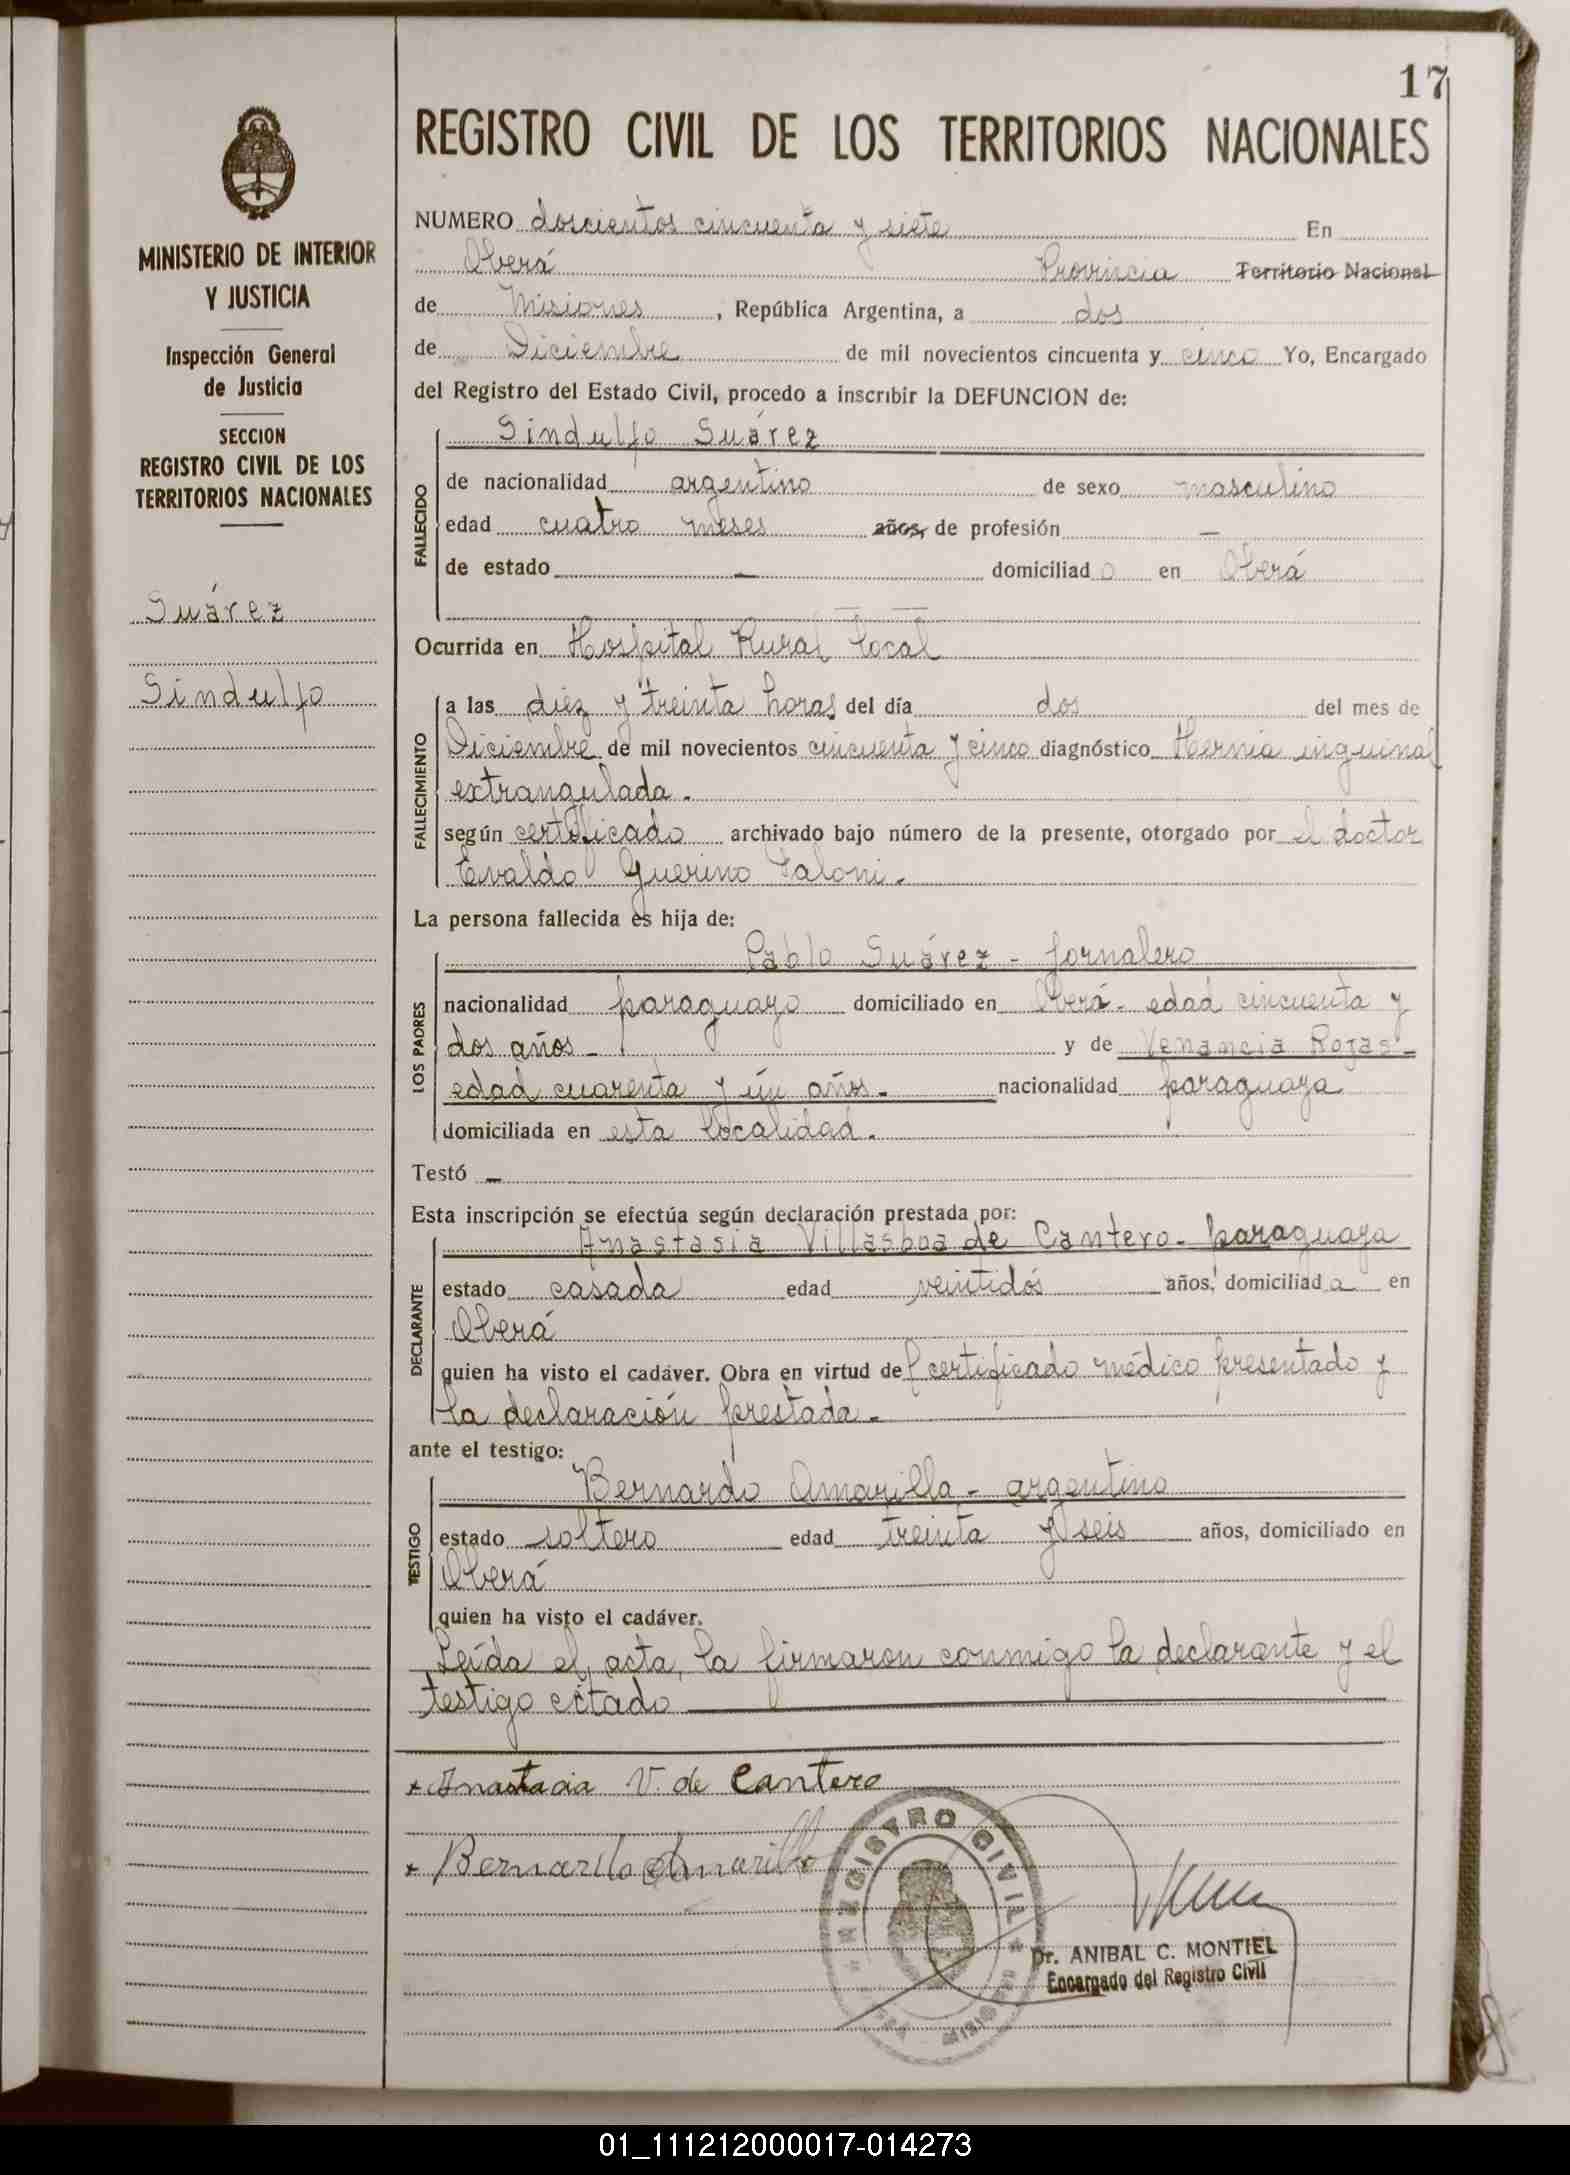 17
REGISTRO CIVIL DE LOS TERRITORIOS NACIONALES
MINISTERIO DE INTERIOR
Y JUSTICIA
Inspección General
de Justicia
SECCION
REGISTRO CIVIL DE LOS
TERRITORIOS NACIONALES
Suárez
Sindulfo
NUMERO doscientos cincuenta y siete En
Oberá Provincia Territorio Nacional
de Misiones, República Argentina, a dos
de Diciembre de mil novecientos cincuenta y cinco Yo, Encargado
del Registro del Estado Civil, procedo a inscribir la DEFUNCION de:
FALLECIDO
Sindulfo Suárez
de nacionalidad argentino de sexo masculino
edad cuatro meses años, de profesión —
de estado — domiciliado en Oberá
Ocurrida en Hospital Rural local
FALLECIMIENTO
a las diéz y treinta horas del día dos del mes de
Diciembre de mil novecientos cincuenta y cinco diagnóstico Hernia inguinal
extrangulada.
según certificado archivado bajo número de la presente, otorgado por el doctor
Evaldo Guerino
La persona fallecida es hija de:
LOS PADRES
Pablo Suárez - jornalero
nacionalidad paraguayo domiciliado en Oberá - edad cincuenta y
dos años - y de Venancia Rojas -
edad cuarenta y ún años. nacionalidad paraguaya
domiciliada en esta localidad.
Testó —
Esta inscripción se efectúa según declaración prestada por:
DECLARANTE
Anastasia Villasboa de Cantero - paraguaya
estado casada edad veintidós años, domiciliada en
Oberá
quien ha visto el cadáver. Obra en virtud del certificado médico presentado y
la declaración prestada -
ante el testigo:
TESTIGO
Bernardo Amarilla - argentino
estado soltero edad treinta y seis años, domiciliado en
Oberá
quien ha visto el cadáver.
Leída el acta, la firmaron conmigo la declarante y el
testigo citado
Anastacia V. de Cantero
Bernardo Amarilla
REGISTRO CIVIL
Dr. ANIBAL C. MONTIEL
Encargado del Registro Civil
01_111212000017-014273